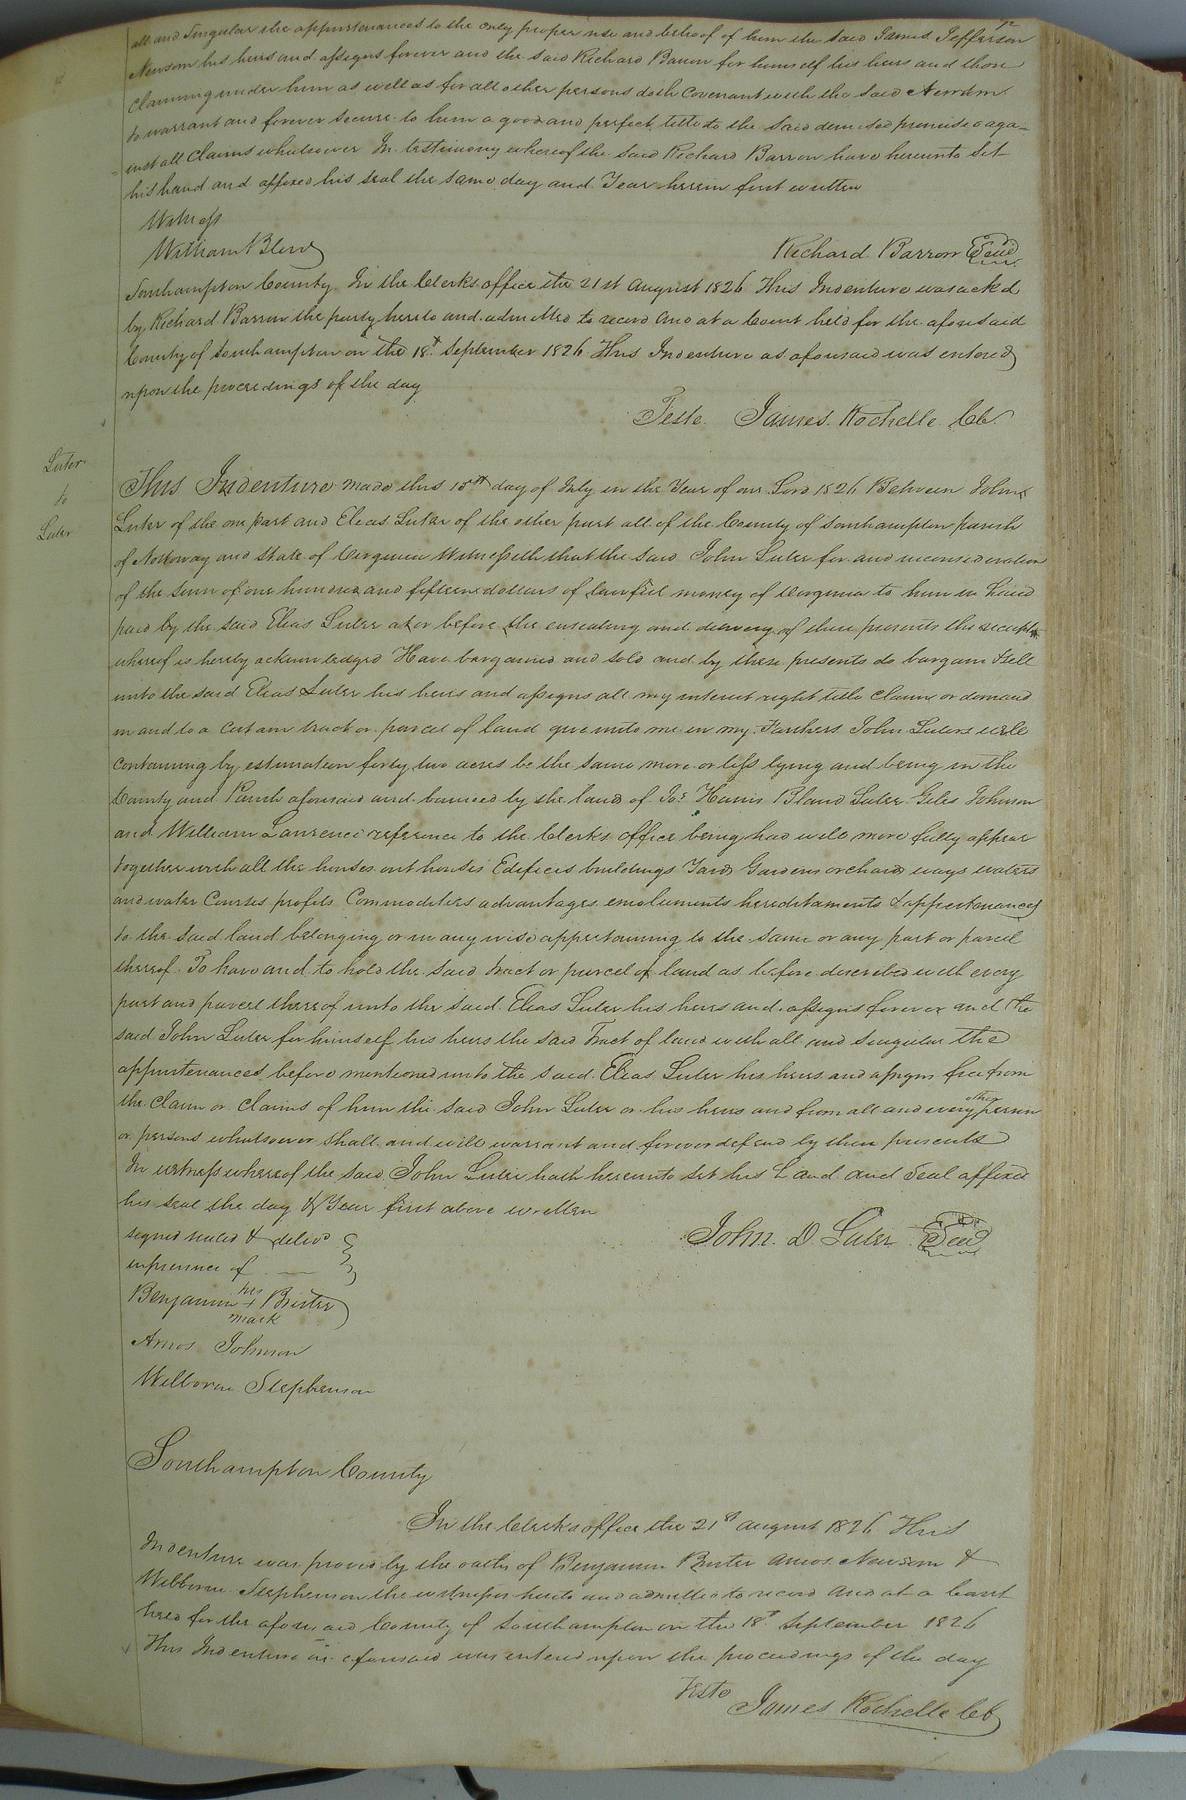 all and Singular the appurtenances to the only proper use and behoof of him the said James Jefferson
Newsom his heirs and assigns forever and the said Richard Barron for himself his heirs and those
claiming under him as well as for all other persons doth covenant with the said Newsom
to warrant and forever secure to him a good and perfect title to the said demised premises aga-
inst all Claims whatsoever In testimony whereof the said Richard Barron have hereunto Set
his hand and affixed his seal the same day and Year herein first written
Witness
William Blow
Richard Barron Seal
Southampton County In the Clerks office the 21st August 1826 This Indenture was ackd
by Richard Barron the party hereto and admitted to record and at a Court held for the aforesaid
County of Southampton on the 18t September 1826 This Indenture as aforesaid was entered
upon the proceedings of the day
Teste. James Rochelle Cl.
Luter
to
Luter
This Indenture made this 15th day of July in the Year of our Lord 1826 Between John
Luter of the one part and Elias Luter of the other part all of the County of Southampton parish
of Nottoway and State of Virginia Witnesseth that the said John Luter for and in consideration
of the sum of one hundred and fifteen dollars of lawful money of Virginia to him in hand
paid by the said Elias Luter at or before the ensealing and delivery of these presents the receipt
whereof is hereby acknowledged Have bargained and sold and by these presents do bargain & sell
unto the said Elias Luter his heirs and assigns all my interest right title claim or demand
in and to a certain tract or parcel of land give unto me in my Farthers John Luters will
containing by estimation forty two acres be the same more or less lying and being in the
County and Parish aforesaid and bounded by the lands of Jos Harris Bland Luter Giles Johnson
and William Lawrence reference to the Clerks office being had will more fully appear
together with all the houses out houses Edifices buildings Yards Gardens orchards ways waters
and water Courses profits Commodities advantages emoluments hereditaments & appertenances
to the said land belonging or in any wise appertaining to the same or any part or parcel
thereof. To have and to hold the said tract or parcel of land as before described with every
part and parcel thereof unto the said Elias Luter his heirs and assigns forever and the
said John Luter for himself his heirs the said Tract of land with all and singular the
appurtenances before mentioned unto the said Elias Luter his heirs and assigns free from
the Claim or Claims of him the said John Luter or his heirs and from all and every other person
or persons whatsoever shall and will warrant and forever defend by these presents
In witness whereof the said John Luter hath hereunto set his hand and Seal affixed
his seal the day & Year first above written
signed sealed & delivd
in presence of
John. D Luter Seal
Benjamin his + mark Brister
Amos Johnson
Welborn Stephenson
Southampton County
In the Clerks office the 21st august 1826 This
Indenture was proved by the oaths of Benjamin Brister Amos Newsom &
Welborne Stephenson the witnesses hereto and admitted to record and at a Court
held for the aforesaid County of Southampton on the 18t September 1826
This Indenture as aforesaid was entered upon the proceedings of the day
Teste James Rochelle Cl